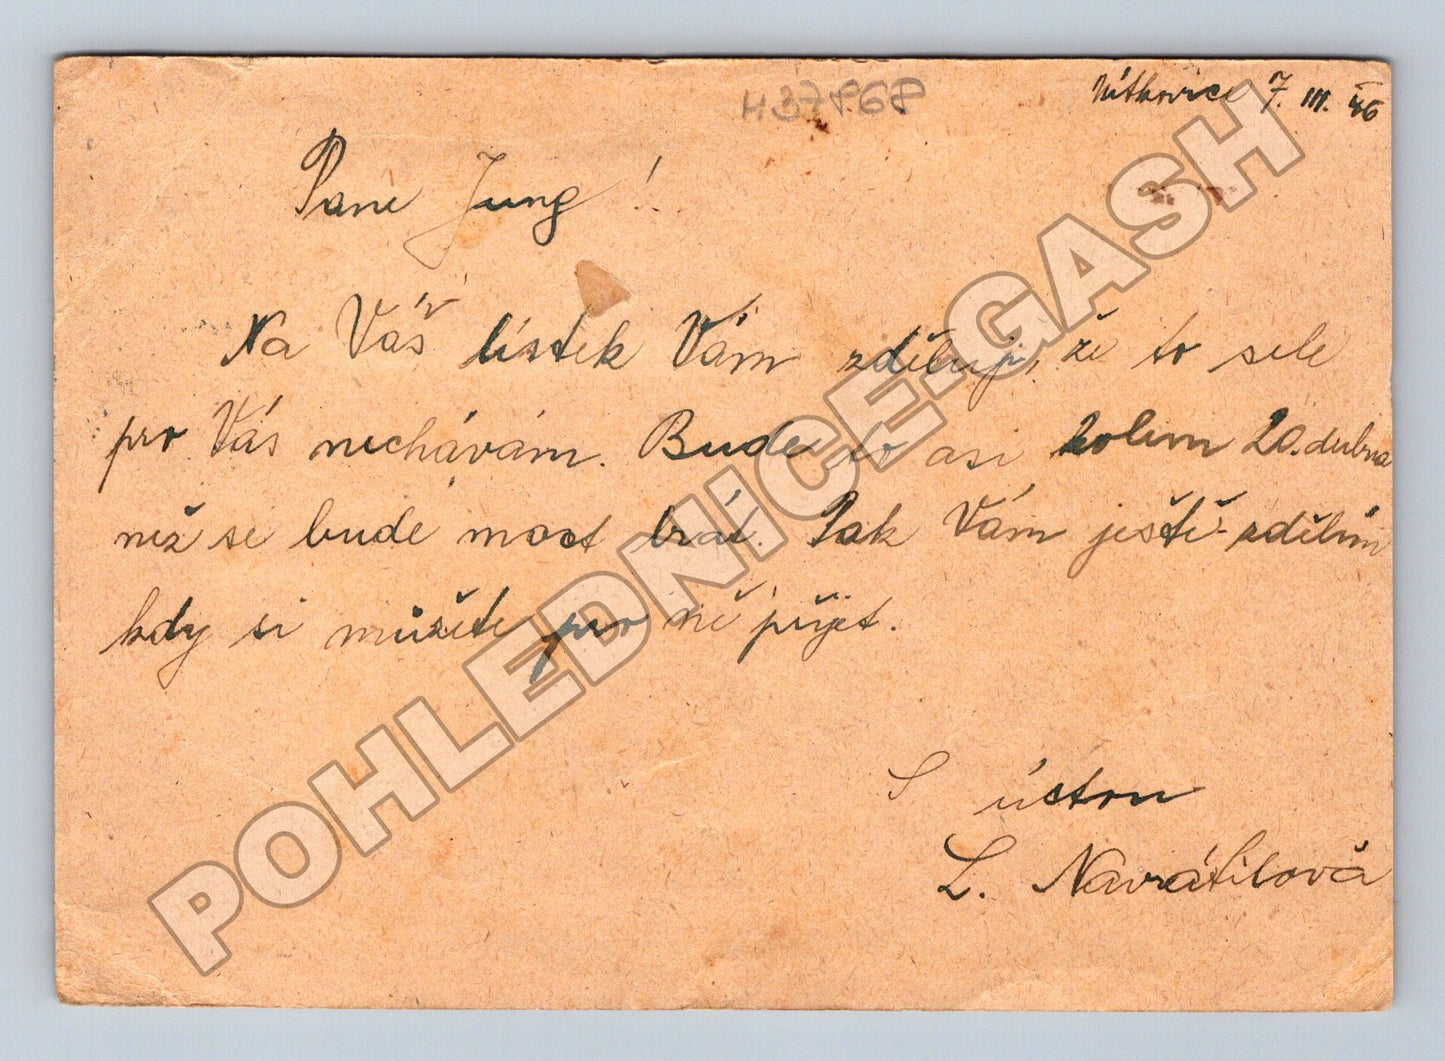 H37868
Vítkovice 7. III. 46
Pane Jung!
Na Váš lístek Vám zděluji, že to sele
pro Vás nechávám. Bude to asi kolem 20. dubna
než se bude moct brát. Pak Vám ještě zdělím
kdy si můžete pro ně přijet.
S úctou
L. Navrátilová
POHLEDNICE.GASH